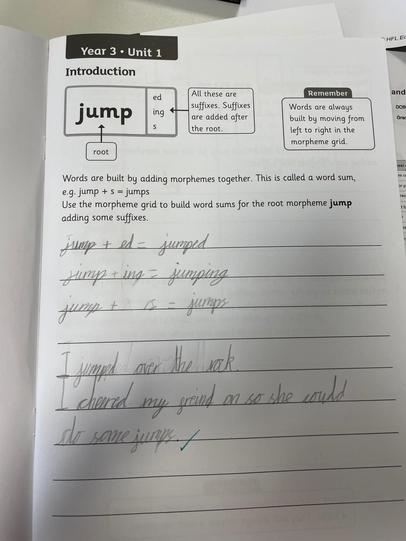 Year 3 • Unit 1
Introduction
jump
ed
ing
s
All these are
suffixes. Suffixes
are added after
the root.
root
Remember
Words are always
built by moving from
left to right in the
morpheme grid.
Words are built by adding morphemes together. This is called a word sum,
e.g. jump + s = jumps
Use the morpheme grid to build word sums for the root morpheme jump
adding some suffixes.
jump + ed = jumped
jump + ing = jumping
jump + s = jumps
I jumpd over the rock.
I chered my freind on so she could
do some jumps.
and